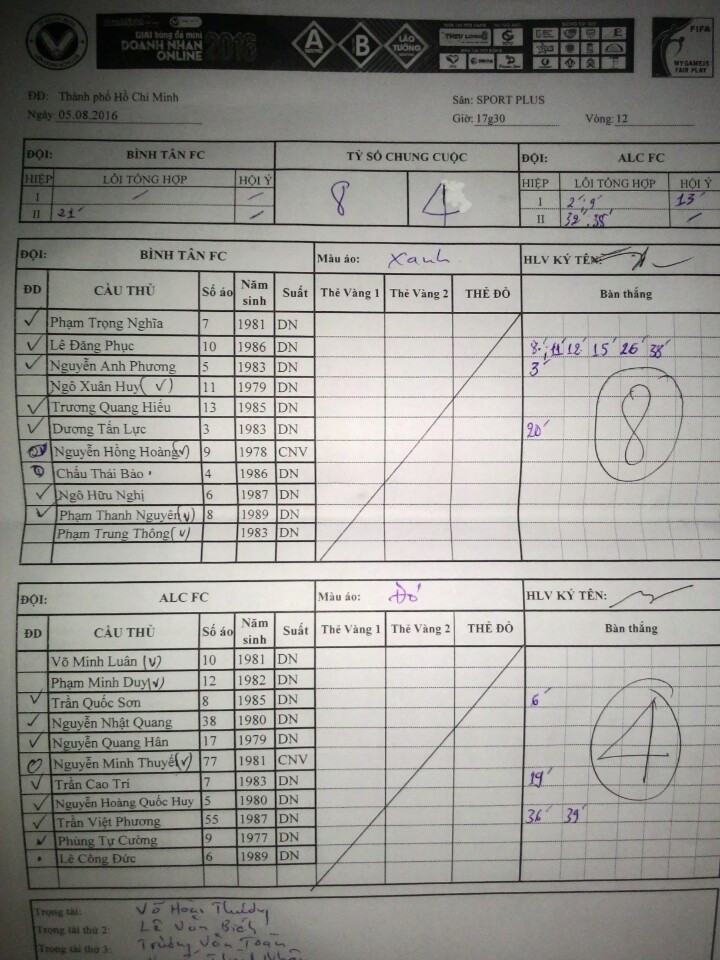 GIẢI bóng đá mini
DOANH NHÂN
ONLINE 2016
A B LÃO TƯỚNG
FIFA
MY GAME IS
FAIR PLAY
ĐĐ: Thành phố Hồ Chí Minh Sân: SPORT PLUS
Ngày 05.08.2016 Giờ: 17g30 Vòng: 12
ĐỘI: BÌNH TÂN FC TỶ SỐ CHUNG CUỘC ĐỘI: ALC FC
HIỆP LỖI TỔNG HỢP HỘI Ý 8 4 HIỆP LỖI TỔNG HỢP HỘI Ý
I / / I 2' 9' 13'
II 21' / II 32' 38' /
ĐỘI: BÌNH TÂN FC Màu áo: Xanh HLV KÝ TÊN:
ĐD CẦU THỦ Số áo Năm sinh Suất Thẻ Vàng 1 Thẻ Vàng 2 THẺ ĐỎ Bàn thắng
✓ Phạm Trọng Nghĩa 7 1981 DN
✓ Lê Đăng Phục 10 1986 DN 8' 11' 12' 15' 26' 38'
✓ Nguyễn Anh Phương 5 1983 DN 3'
Ngô Xuân Huy (v) 11 1979 DN
✓ Trương Quang Hiếu 13 1985 DN
✓ Dương Tấn Lực 3 1983 DN 20'
Nguyễn Hồng Hoàng (v) 9 1978 CNV
Châu Thái Bảo 4 1986 DN
✓ Ngô Hữu Nghị 6 1987 DN
✓ Phạm Thanh Nguyên (v) 8 1989 DN
Phạm Trung Thông (v) 1983 DN
8
ĐỘI: ALC FC Màu áo: Đỏ HLV KÝ TÊN:
ĐD CẦU THỦ Số áo Năm sinh Suất Thẻ Vàng 1 Thẻ Vàng 2 THẺ ĐỎ Bàn thắng
Võ Minh Luân (v) 10 1981 DN
Phạm Minh Duy (v) 12 1982 DN
✓ Trần Quốc Sơn 8 1985 DN 6'
✓ Nguyễn Nhật Quang 38 1980 DN
✓ Nguyễn Quang Hân 17 1979 DN
Nguyễn Minh Thuyết (v) 77 1981 CNV
✓ Trần Cao Trí 7 1983 DN 19'
✓ Nguyễn Hoàng Quốc Huy 5 1980 DN
✓ Trần Việt Phương 55 1987 DN 36' 39'
✓ Phùng Tự Cường 9 1977 DN
Lê Công Đức 6 1989 DN
4
Trọng tài: Võ Hoài Thương
Trọng tài thứ 2: Lê Văn Bích
Trọng tài thứ 3: Trương Văn Toàn